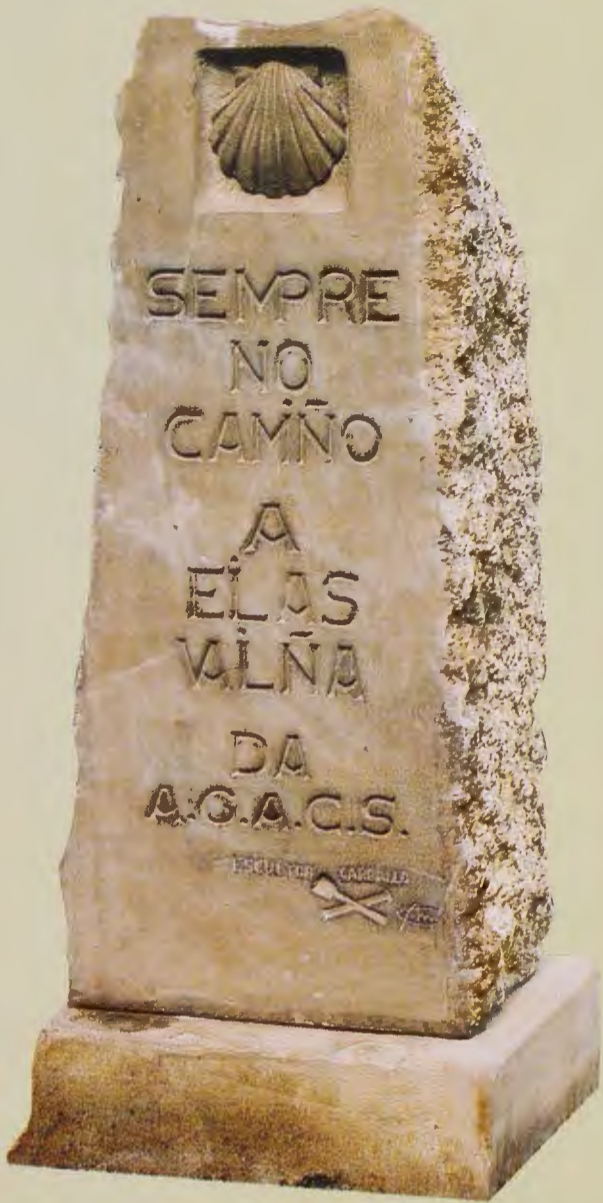 SEMPRE
NO
CAMIÑO
A
ELIAS
VALIÑA
DA
A.G.A.C.S.
ESCULTOR